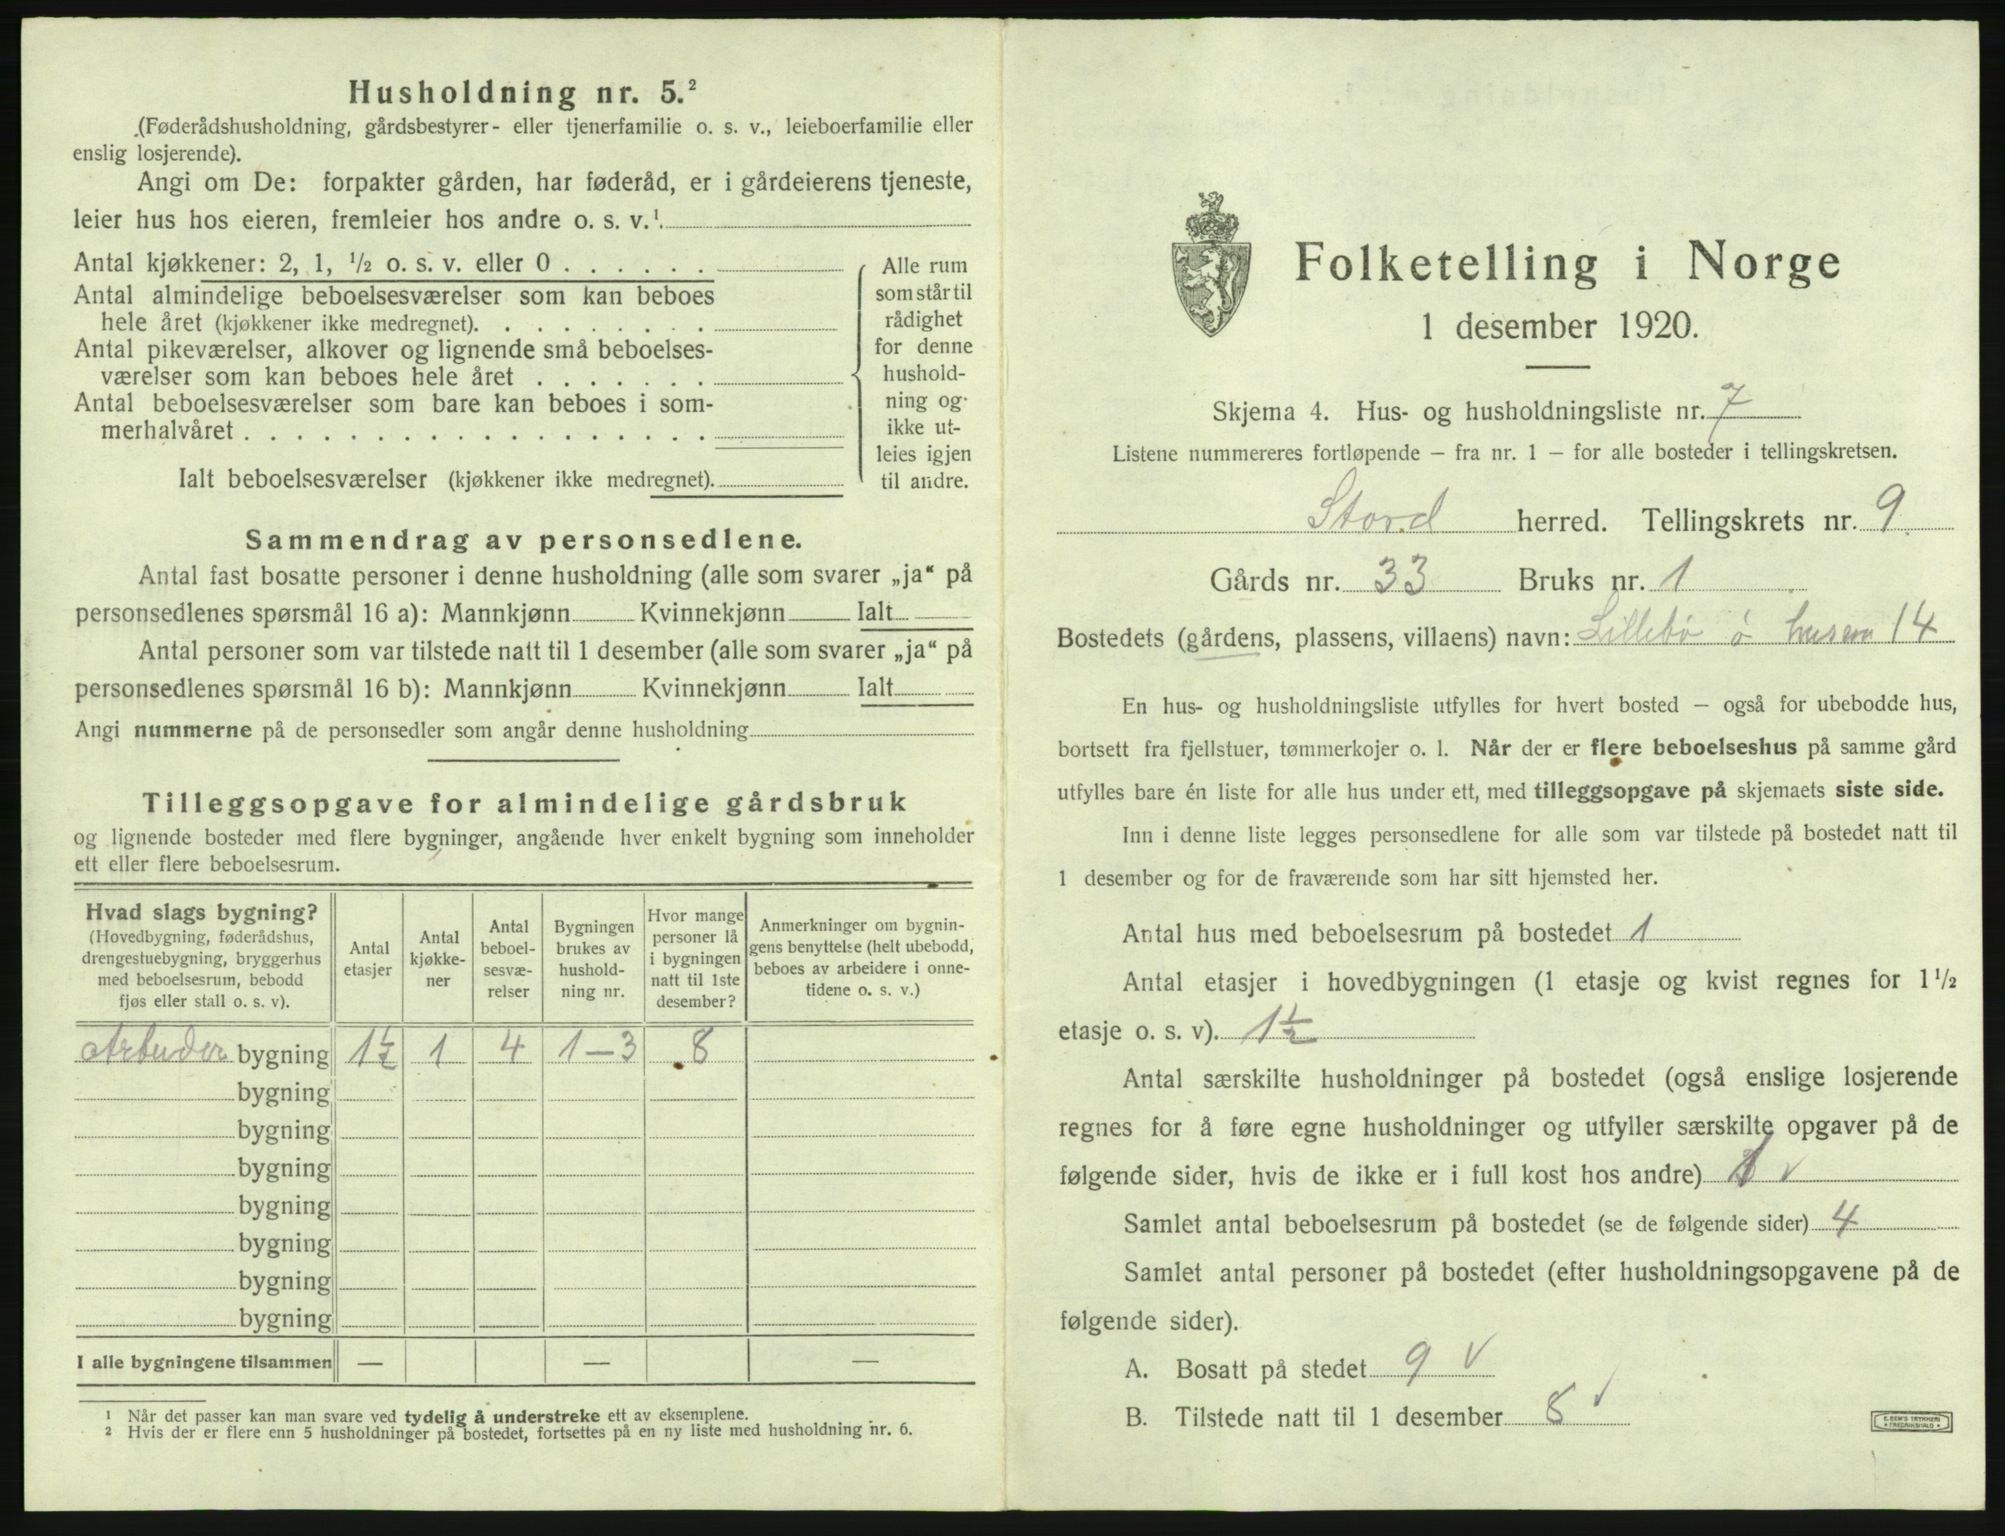 Husholdning nr. 5.²
(Føderådshusholdning, gårdsbestyrer- eller tjenerfamilie o. s. v., leieboerfamilie eller
enslig losjerende).
Angi om De: forpakter gården, har føderåd, er i gårdeierens tjeneste,
leier hus hos eieren, fremleier hos andre o. s. v.¹
Antal kjøkkener: 2, 1, ½ o. s. v. eller 0
Antal almindelige beboelsesværelser som kan beboes
hele året (kjøkkener ikke medregnet).
Antal pikeværelser, alkover og lignende små beboelses-
værelser som kan beboes hele året
Antal beboelsesværelser som bare kan beboes i som-
merhalvåret
Ialt beboelsesværelser (kjøkkener ikke medregnet).
Alle rum
som står til
rådighet
for denne
hushold-
ning og
ikke ut-
leies igjen
til andre.
Sammendrag av personsedlene.
Antal fast bosatte personer i denne husholdning (alle som svarer „ja“ på
personsedlenes spørsmål 16 a): Mannkjønn Kvinnekjønn Ialt
Antal personer som var tilstede natt til 1 desember (alle som svarer „ja“ på
personsedlenes spørsmål 16 b): Mannkjønn Kvinnekjønn Ialt
Angi nummerne på de personsedler som angår denne husholdning
Tilleggsopgave for almindelige gårdsbruk
og lignende bosteder med flere bygninger, angående hver enkelt bygning som inneholder
ett eller flere beboelsesrum.
Hvad slags bygning?
(Hovedbygning, føderådshus,
drengestuebygning, bryggerhus
med beboelsesrum, bebodd
fjøs eller stall o. s. v).
Antal
etasjer
Antal
kjøkke-
ner
Antal
beboel-
sesvæ-
relser
Bygningen
brukes av
hushold-
ning nr.
Hvor mange
personer lå
i bygningen
natt til 1ste
desember?
Anmerkninger om bygnin-
gens benyttelse (helt ubebodd,
beboes av arbeidere i onne-
tidene o. s. v.)
Arbeider bygning 1½ 1 4 1-3 8
bygning
bygning
bygning
bygning
bygning
bygning
bygning
I alle bygningene tilsammen — — —
¹ Når det passer kan man svare ved tydelig å understreke ett av eksemplene.
² Hvis der er flere enn 5 husholdninger på bostedet, fortsettes på en ny liste med husholdning nr. 6.
Folketelling i Norge
1 desember 1920.
Skjema 4. Hus- og husholdningsliste nr. 7
Listene nummereres fortløpende – fra nr. 1 – for alle bosteder i tellingskretsen.
Stord herred. Tellingskrets nr. 9
Gårds nr. 33 Bruks nr. 1
Bostedets (gårdens, plassens, villaens) navn: Lillebö ö 14
En hus- og husholdningsliste utfylles for hvert bosted – også for ubebodde hus,
bortsett fra fjellstuer, tømmerkojer o. l. Når der er flere beboelseshus på samme gård
utfylles bare én liste for alle hus under ett, med tilleggsopgave på skjemaets siste side.
Inn i denne liste legges personsedlene for alle som var tilstede på bostedet natt til
1 desember og for de fraværende som har sitt hjemsted her.
Antal hus med beboelsesrum på bostedet 1
Antal etasjer i hovedbygningen (1 etasje og kvist regnes for 1½
etasje o. s. v). 1½
Antal særskilte husholdninger på bostedet (også enslige losjerende
regnes for å føre egne husholdninger og utfyller særskilte opgaver på de
følgende sider, hvis de ikke er i full kost hos andre) v
Samlet antal beboelsesrum på bostedet (se de følgende sider) 4
Samlet antal personer på bostedet (efter husholdningsopgavene på de
følgende sider).
A. Bosatt på stedet 9 v
B. Tilstede natt til 1 desember 8 v
E. SEM'S TRYKKERI
FREDRIKSHALD